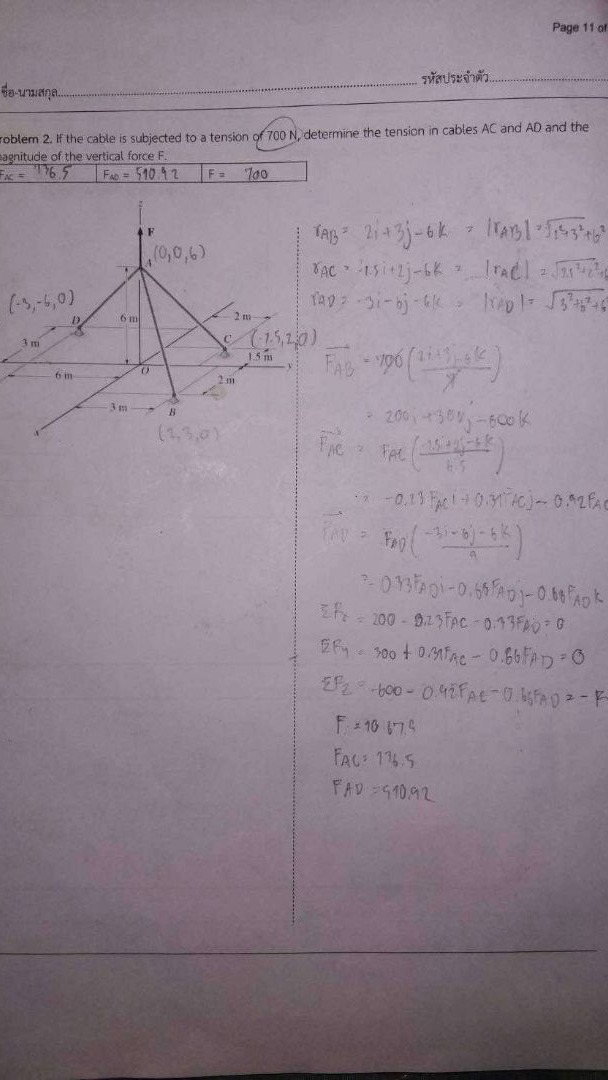 Page 11 of
ชื่อ-นามสกุล
รหัสประจำตัว
roblem 2. If the cable is subjected to a tension of 700 N, determine the tension in cables AC and AD and the
agnitude of the vertical force F.
F_AC = 136.5 F_AD = 510.92 F = 700
z
F
A (0,0,6)
(-3,-6,0)
D
6 m
2 m
C (-1.5,2,0)
3 m
1.5 m
6 m
O
y
2 m
3 m
B
(2,3,0)
r_AB = 2i + 3j - 6k = |r_AB| = √2²+3²+6²
r_AC = -1.5i + 2j - 6k = |r_AC| = √1.5²+2²+6
r_AD = -3i - 6j - 6k = |r_AD| = √3²+6²+6
F_AB = 700 (2i+3j-6k / 7)
= 200i + 300j - 600k
F_AC = F_AC (-1.5i+2j-6k / 6.5)
= -0.23 F_AC i + 0.31 F_AC j - 0.92 F_AC
F_AD = F_AD (-3i-6j-6k / 9)
= -0.33 F_AD i - 0.66 F_AD j - 0.66 F_AD k
= 200 - 0.23 F_AC - 0.33 F_AD = 0
ΣF_y = 300 + 0.31 F_AC - 0.66 F_AD = 0
ΣF_z = -600 - 0.92 F_AC - 0.66 F_AD = - F
F_AC = 136.5
F_AD = 510.92